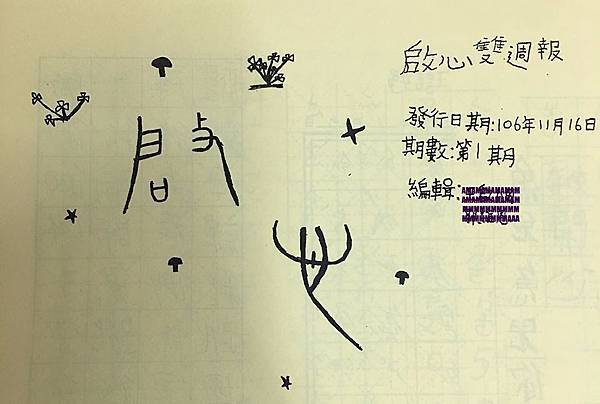 啟心雙週報
發行日期:106年11月16日
期數:第1期
編輯:
啟
心